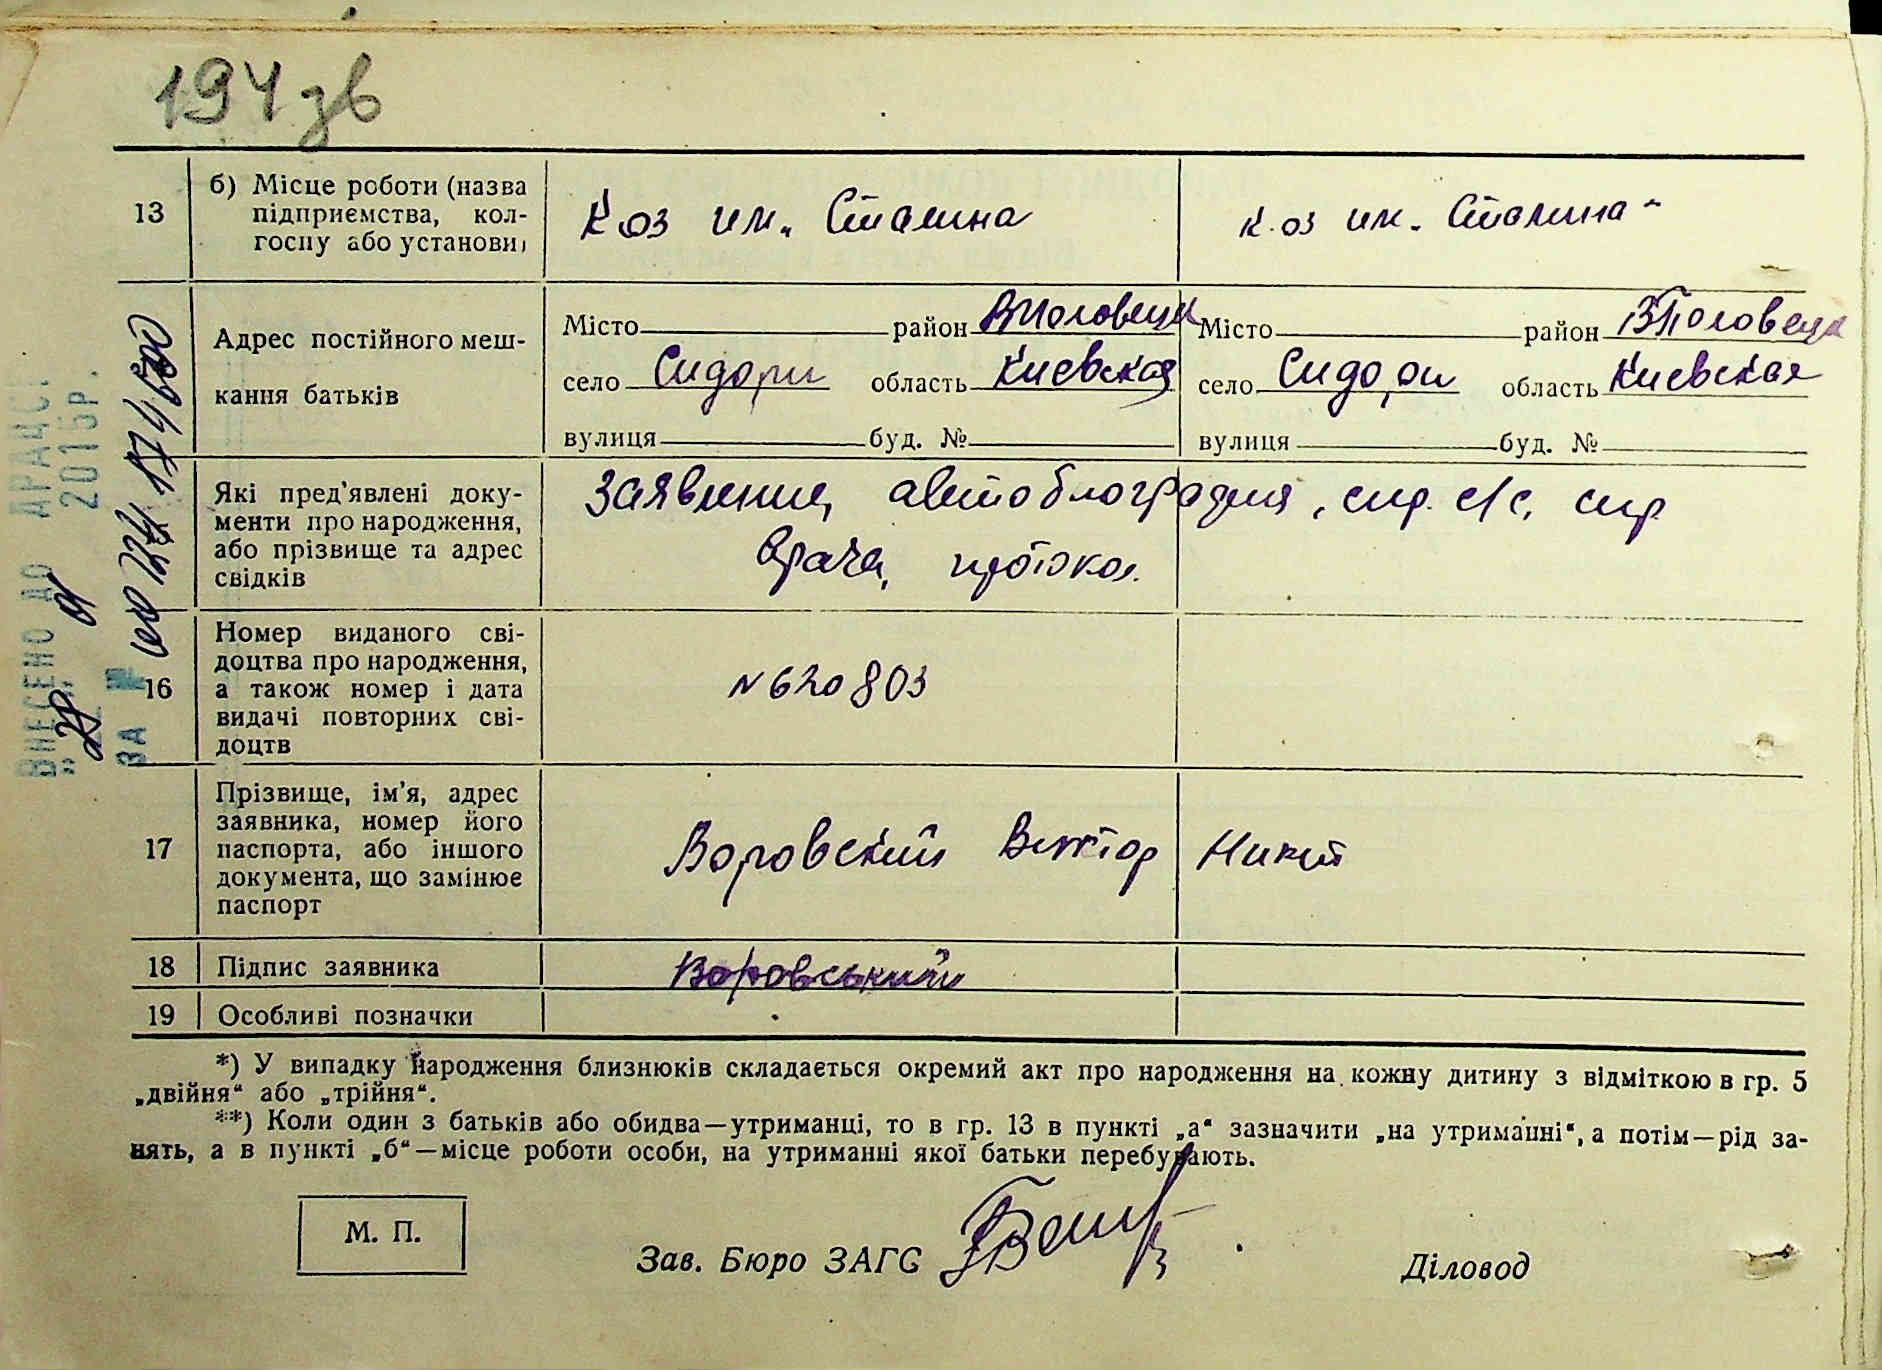 194 зв
13
б) Місце роботи (назва
підприємства, кол-
госпу або установи)
К-оз им. Сталина
к-оз им. Сталина
Адрес постійного меш-
кання батьків
Місто район ВПоловецк
село Сидори область Киевская
вулиця буд. №
Місто район ВПоловецк
село Сидори область Киевская
вулиця буд. №
Які пред'явлені доку-
менти про народження,
або прізвище та адрес
свідків
Заявление, автобиография, спр. с/с, спр.
врача, протокол.
16
Номер виданого сві-
доцтва про народження,
а також номер і дата
видачі повторних сві-
доцтв
№ 620803
17
Прізвище, ім'я, адрес
заявника, номер його
паспорта, або іншого
документа, що замінює
паспорт
Воровский Виктор Никит
18
Підпис заявника
Воровський
19
Особливі позначки
*) У випадку народження близнюків складається окремий акт про народження на кожну дитину з відміткою в гр. 5
„двійня“ або „трійня“.
**) Коли один з батьків або обидва—утриманці, то в гр. 13 в пункті „а“ зазначити „на утриманні“, а потім—рід за-
нять, а в пункті „б“—місце роботи особи, на утриманні якої батьки перебувають.
М. П.
Зав. Бюро ЗАГС
Діловод
ВНЕСЕНО ДО ДРАЦСГ
2015р.
ЗА №